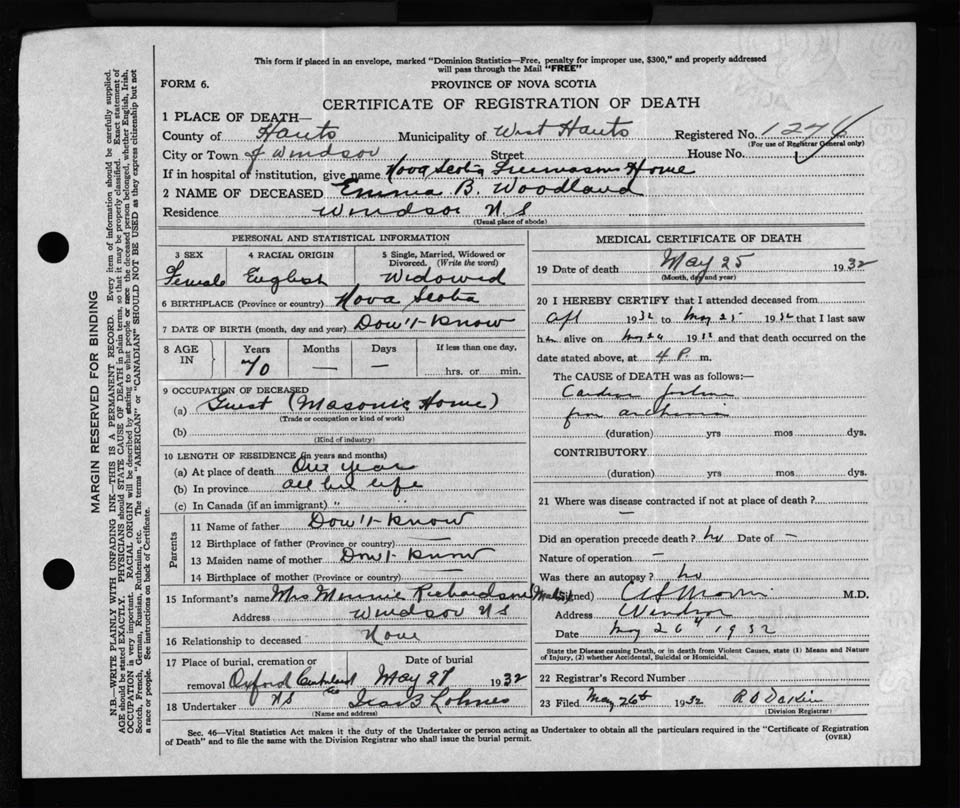 This form if placed in an envelope, marked "Dominion Statistics—Free, penalty for improper use, $300," and properly addressed
will pass through the Mail "FREE"
FORM 6.
PROVINCE OF NOVA SCOTIA
CERTIFICATE OF REGISTRATION OF DEATH
1 PLACE OF DEATH—
County of Hants Municipality of West Hants Registered No. 1276
(For use of Registrar General only)
City or Town of Windsor Street House No.
If in hospital or institution, give name Nova Scotia Freemasons Home
2 NAME OF DECEASED Emma B. Woodland
Residence Windsor N.S
(Usual place of abode)
PERSONAL AND STATISTICAL INFORMATION
3 SEX 4 RACIAL ORIGIN 5 Single, Married, Widowed or Divorced. (Write the word)
Female English Widowed
6 BIRTHPLACE (Province or country) Nova Scotia
7 DATE OF BIRTH (month, day and year) Don't Know
8 AGE IN Years Months Days If less than one day.
70 — — hrs. or min.
9 OCCUPATION OF DECEASED
(a) Guest (Masonic Home)
(Trade or occupation or kind of work)
(b)
(Kind of industry)
10 LENGTH OF RESIDENCE (in years and months)
(a) At place of death One year
(b) In province all her life
(c) In Canada (if an immigrant) " "
Parents
11 Name of father Don't Know
12 Birthplace of father (Province or country) —
13 Maiden name of mother Don't Know
14 Birthplace of mother (Province or country) —
15 Informant's name Mrs Minnie Richardson
Address Windsor NS
16 Relationship to deceased None
17 Place of burial, cremation or removal Oxford Cumberland Co Date of burial May 27 1932
NS
18 Undertaker
(Name and address)
MEDICAL CERTIFICATE OF DEATH
19 Date of death May 25 1932
(Month, day and year)
20 I HEREBY CERTIFY that I attended deceased from
Apl 1932 to May 25 1932 that I last saw
her alive on May 24 1932 and that death occurred on the
date stated above, at 4 P. m.
The CAUSE of DEATH was as follows:—
Cardiac
from
(duration) yrs mos dys.
CONTRIBUTORY
(duration) yrs mos dys.
21 Where was disease contracted if not at place of death?
—
Did an operation precede death? No Date of —
Nature of operation —
Was there an autopsy? No
(Signed) M.D.
Address Windsor
Date May 26th 1932
State the Disease causing Death, or in death from Violent Causes, state (1) Means and Nature
of Injury, (2) whether Accidental, Suicidal or Homicidal.
22 Registrar's Record Number
23 Filed May 26th 1932
(Division Registrar)
Sec. 46—Vital Statistics Act makes it the duty of the Undertaker or person acting as Undertaker to obtain all the particulars required in the "Certificate of Registration
of Death" and to file the same with the Division Registrar who shall issue the burial permit.
(OVER)
MARGIN RESERVED FOR BINDING
N.B.—WRITE PLAINLY WITH UNFADING INK—THIS IS A PERMANENT RECORD. Every item of information should be carefully supplied.
AGE should be stated EXACTLY. PHYSICIANS should STATE CAUSE OF DEATH in plain terms, so that it may be properly classified. Exact statement of
OCCUPATION is very important. RACIAL ORIGIN will be described by stating to what people or race the deceased person belonged, whether English, Irish,
Scotch, French, German, Russian, Ruthenian, etc. The terms "AMERICAN" or "CANADIAN" SHOULD NOT BE USED as they express citizenship but not
a race or people. See instructions on back of Certificate.